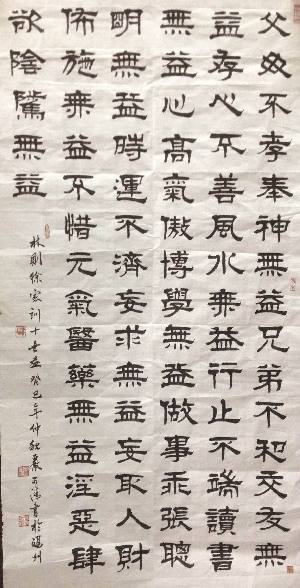 父母不孝奉神無益兄弟不和交友無
益存心不善風水無益行止不端讀書
無益心高氣傲博學無益做事乖張聰
明無益時運不濟妄求無益妄取人財
佈施無益不惜元氣醫藥無益淫惡肆
欲陰騭無益
林則徐家訓十無益癸巳年仲秋嚴書於溫州